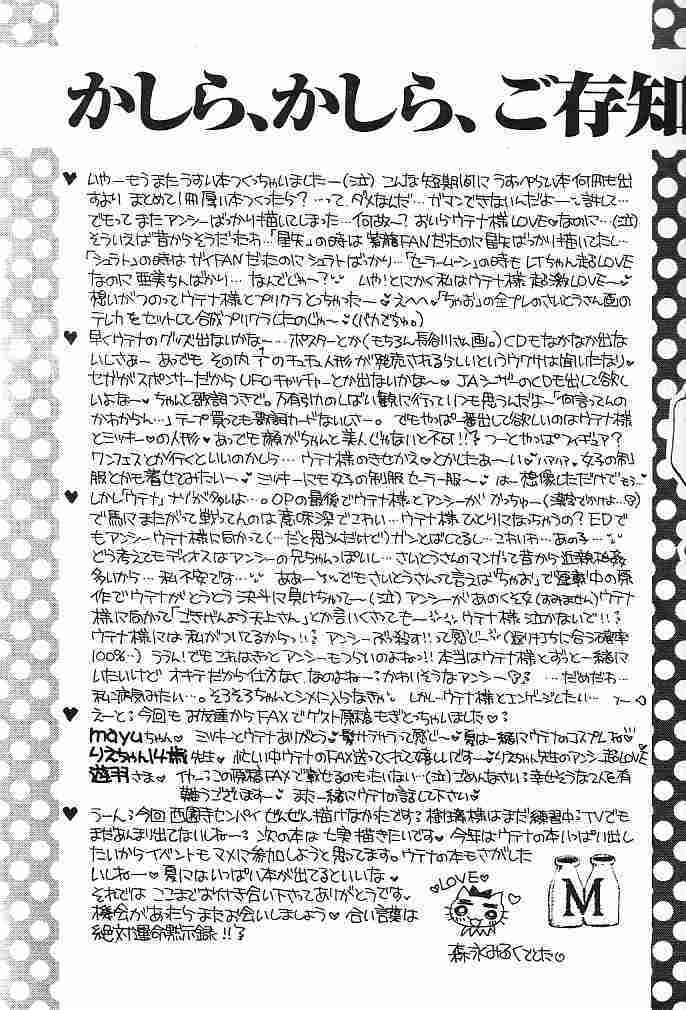 かしら、かしら、ご存知
♥ いやーもうまたうすい本つくっちゃいましたー(泣) こんな短期間にうすっぺらい本何冊も出
すより まとめて1冊厚い本つくったら? …って ダメなんだ… ガマンできないんだよー…許して…
でもって またアンシーばっかり描いてしまった…何故ー? おいらウテナ様LOVE♥なのに…(泣)
そういえば昔からそうだったわ…「星矢」の時は 紫龍FANだったのに星矢ばっかり描いてたし…
「シュラト」の時はガイFANだったのに シュラトばかり…「セーラームーン」の時も LTちゃん超LOVE
なのに 亜美ちんばかり… なんでじゃー? いや!とにかく私はウテナ様 超激LOVE〜♥
想いがつのってウテナ様とプリクラとっちった〜♥ えへへ♥「ちゃお」の全プレのさいとうさん画の
テレカをセットして合成プリクラしたのじゃ〜♥(バカでちゅ。)
♥ 早くウテナのグッズ出ないかな〜…ポスターとか(もちろん長谷川さん画。)CDもなかなか出な
いしさあー あっでも その内 1/1のチュチュ人形が発売されるらしいというウワサは聞いたなり♥
セガがスポンサーだから UFOキャッチャーとか出ないかな〜♥ JAシーザーのCDも出して欲し
いよな〜♥ ちゃんと歌詞つきで。万有引力のしばい観に行っていつも思うんだよー「何言ってんの
かわからん…」テープ買っても歌詞カードないしさー。 でもやっぱ一番出して欲しいのはウテナ様
とミッキー♥の人形♥ あっでも顔がちゃんと美人じゃないと不可!!? つーとやっぱフィギュア?
ワンフェスとか行くといいのかしら…ウテナ様のきせかえ♥とかしたあーい♥ハアハア 女子の制
服とかも着せてみたいっ♥ ミッキーにも女子の制服 セーラー服〜♥ は…想像しただけでもう…
♥ しかし「ウテナ」ナゾが多いよ…。OPの最後でウテナ様とアンシーが がっちゅー(漢字でかけよ…)
で馬にまたがって戦ってんのは 意味深でこわい… ウテナ様ひとりになっちゃうの? EDで
もアンシーウテナ様に向かって(…だと思うんだけど)ガンとばしてるし…これいわ…あの子…
どう考えてもディオスはアンシーの兄ちゃんっぽいし…さいとうさんのマンガって昔から近親相姦
多いから…私不安です… ああー でもさいとうさんって言えば「ちゃお」で連載中の原
作でウテナがとうとう決斗に負けちゃって〜(泣) アンシーがあのくそ女(おすみません)ウテナ
様に向かって「ごきげんよう天上さん」とか言いくさっても〜 ウテナ様泣かないで!!
ウテナ様には私がついてるからっ!! アンシーぶっ殺す!!って感じ〜(返り討ちに合う確率
100%…) ううん!でもこれはきっとアンシーもつらいのよねっ!!本当はウテナ様とずっと一緒に
いたいけど オキテだから仕方なく なのよねー かわいそうなアンシー …だめだわ…
私に病気みたい…。そろそろちゃんとシメに入らなきゃ。しかしーウテナ様とエンゲージしたい…
♥ えーと 今回もお友達からFAXでゲスト原稿もぎとっちゃいました
mayuちゃん♥ ミッキーとウテナありがとう♥髪サラサラって感じ〜♥夏は一緒にウテナのコスプレね♥
りえちゃん14歳先生♥ 忙しい中ウテナのFAX送ってくれて嬉しいですー♥りえちゃん先生のアンシー超LOVE
遊羽さま♥ イヤーこの原稿FAXで載せるのもったいない…(泣)ごめんなさい 幸せそうな2人を有
難うございますー♥ また一緒にウテナの話して下さい♥
♥ うーん 今回 西園寺センパイぜんぜん描けなかったです 樹璃様はまだ練習中 TVでも
まだあんまり出てないしね〜 次の本は七実描きたいです♥ 今年はウテナの本いっぱい出し
たいからイベントもマメに参加しようと思ってます。ウテナの本もさがした
いしねー♥夏にはいっぱい本が出てるといいな♥
それでは ここまでお付き合い下さってありがとうです。
機会があったらまたお会いしましょう♥ 合い言葉は
絶対運命黙示録!!?
♥LOVE♥
M
森永みるくでした♥